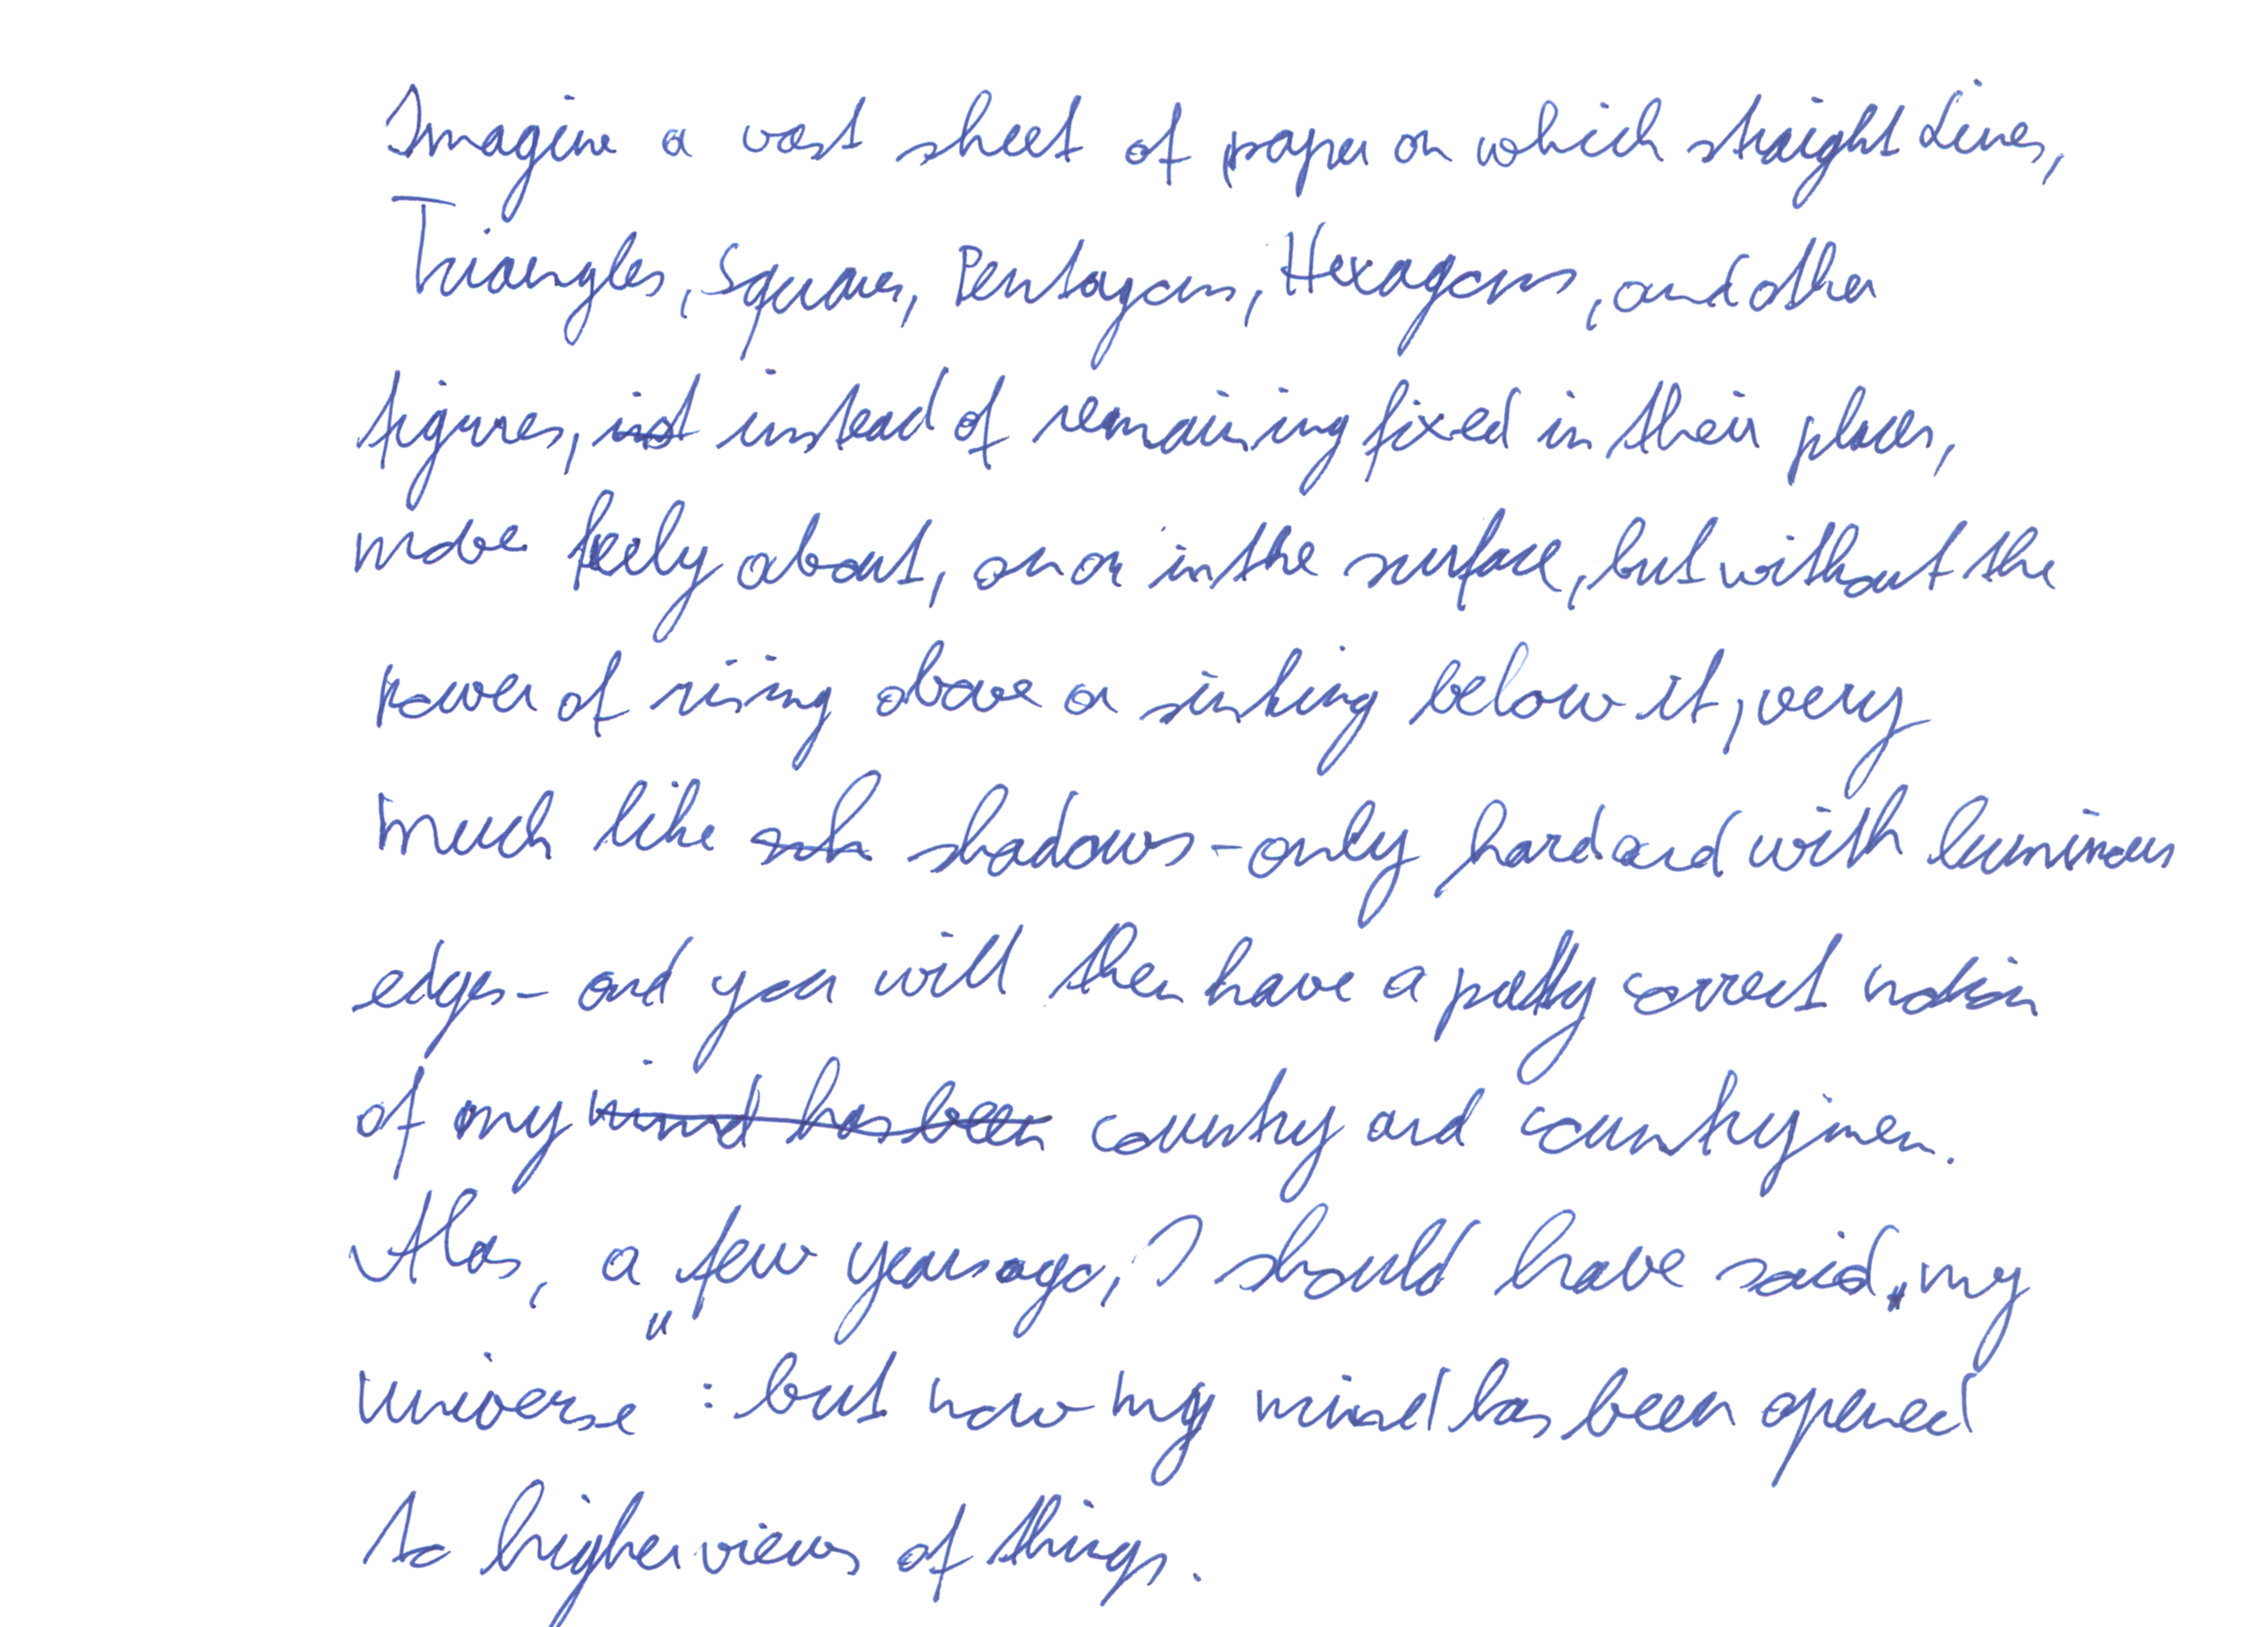 Imagine a vast sheet of paper on which straight Lines,
Triangles, Squares, Pentagons, Hexagons, and other
figures, inst instead of remaining fixed in their places,
move freely about, on or in the surface, but without the
power of rising above or sinking below it, very
much like sh shadows - only hard and with luminous
edges - and you will then have a pretty correct notion
of my mind has been country and countrymen.
Alas, a few years ago, I should have said „my
universe": but now my mind has been opened
to higher views of things.